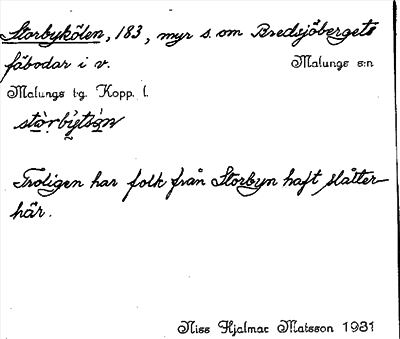 Storbykölen, 183, myr s. om Bredsjöbergets
fäbodar i v. Malungs s:n
Malungs tg. Kopp. l.
stòrbýtsə̀n
Troligen har folk från Storbyn haft slåtter
här.
Niss Hjalmar Matsson 1931